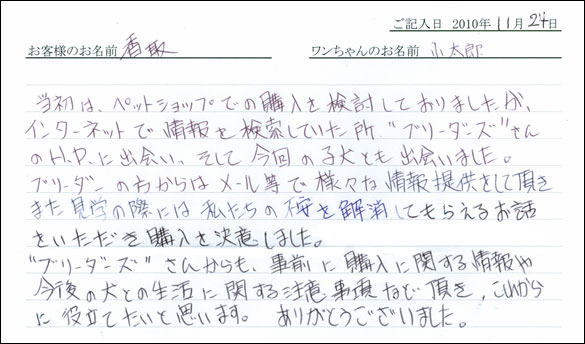 ご記入日 2010年 11月 24日
お客様のお名前 香取 ワンちゃんのお名前 小太郎
当初は、ペットショップでの購入を検討しておりましたが、
インターネットで情報を検索していた所、"ブリーダーズ"さん
のH.P.に出会い、そして今回の子犬とも出会いました。
ブリーダーの方からはメール等で様々な情報提供をして頂き
また見学の際には私たちの不安を解消してもらえるお話
をいただき購入を決意しました。
"ブリーダーズ"さんからも、事前に購入に関する情報や
今後の犬との生活に関する注意事項など頂き、これから
に役立てたいと思います。 ありがとうございました。